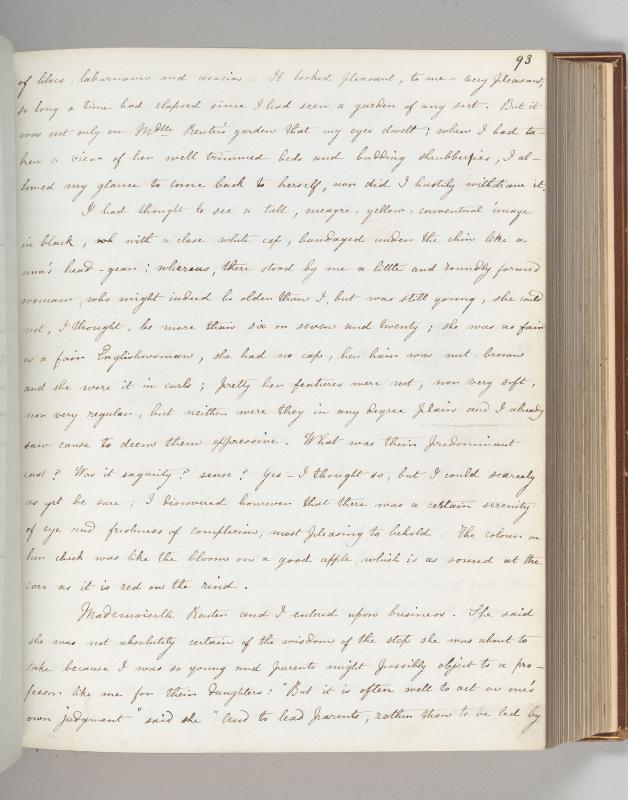 93
of lilacs, laburnams and acacias. It looked pleasant, to me – very pleasant,
so long a time had elapsed since I had seen a garden of any sort. But it
was not only on Mdlle Reuter's garden that my eyes dwelt; when I had ta-
ken a view of her well trimmed beds and budding shrubberies, I al-
lowed my glance to come back to herself, nor did I hastily withdraw it.
I had thought to see a tall, meagre, yellow, conventual image
in black, with a close white cap, bandaged under the chin like a
nun's head-gear; whereas, there stood by me a little and roundly formed
woman, who might indeed be older than I, but was still young, she could
not, I thought, be more than six or seven and twenty; she was as fair
as a fair Englishwoman, she had no cap, her hair was nut brown
and she wore it in curls; pretty her features were not, nor very soft,
nor very regular, but neither were they in any degree plain and I already
saw cause to deem them expressive. What was their predominant
cast? Was it sagacity? sense? Yes – I thought so, but I could scarcely
as yet be sure; I discovered however that there was a certain serenity
of eye and freshness of complexion, most pleasing to behold. The colour on
her cheek was like the bloom on a good apple, which is as sound at the
core as it is red on the rind.
Mademoiselle Reuter and I entered upon business. She said
she was not absolutely certain of the wisdom of the step she was about to
take because I was so young and parents might possibly object to a pro-
fessor like me for their daughters: "But it is often well to act on one's
own judgment" said she "and to lead parents, rather than to be led by